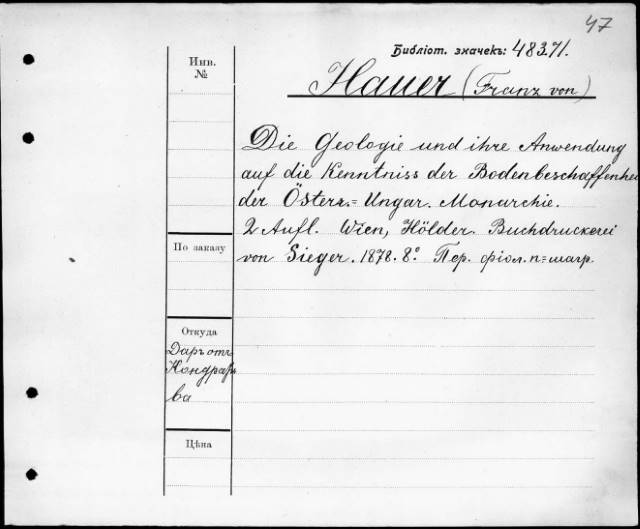 47
Библіот. значекъ: 483.71.
Инв.
№
Hauer (Franz von)
Die Geologie und ihre Anwendung
auf die Kenntniss der Bodenbeschaffenhei
der Österr.= Ungar. Monarchie.
2 Aufl. Wien, Hölder. Buchdruckerei
von Sieger. 1878. 8° Пер. фіол. п=шагр.
По заказу
Откуда
Даръ отъ
Кондрать
ва
Цѣна